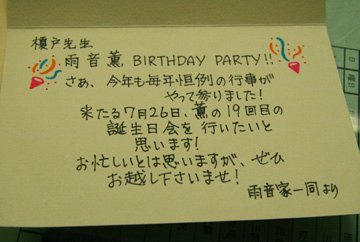 榎戸先生
雨音薫 BIRTHDAY PARTY!!
さあ、今年も毎年恒例の行事が
やって参りました!
来たる7月26日、薫の19回目の
誕生日会を行いたいと
思います!
お忙しいとは思いますが、ぜひ
お越し下さいませ!
雨音家一同より